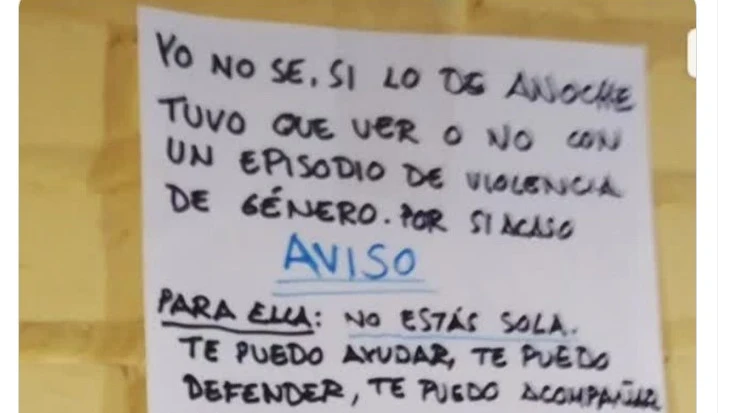 YO NO SE, SI LO DE ANOCHE
TUVO QUE VER O NO CON
UN EPISODIO DE VIOLENCIA
DE GÉNERO. POR SI ACASO
AVISO
PARA ELLA: NO ESTÁS SOLA.
TE PUEDO AYUDAR, TE PUEDO
DEFENDER, TE PUEDO ACOMPAÑAR